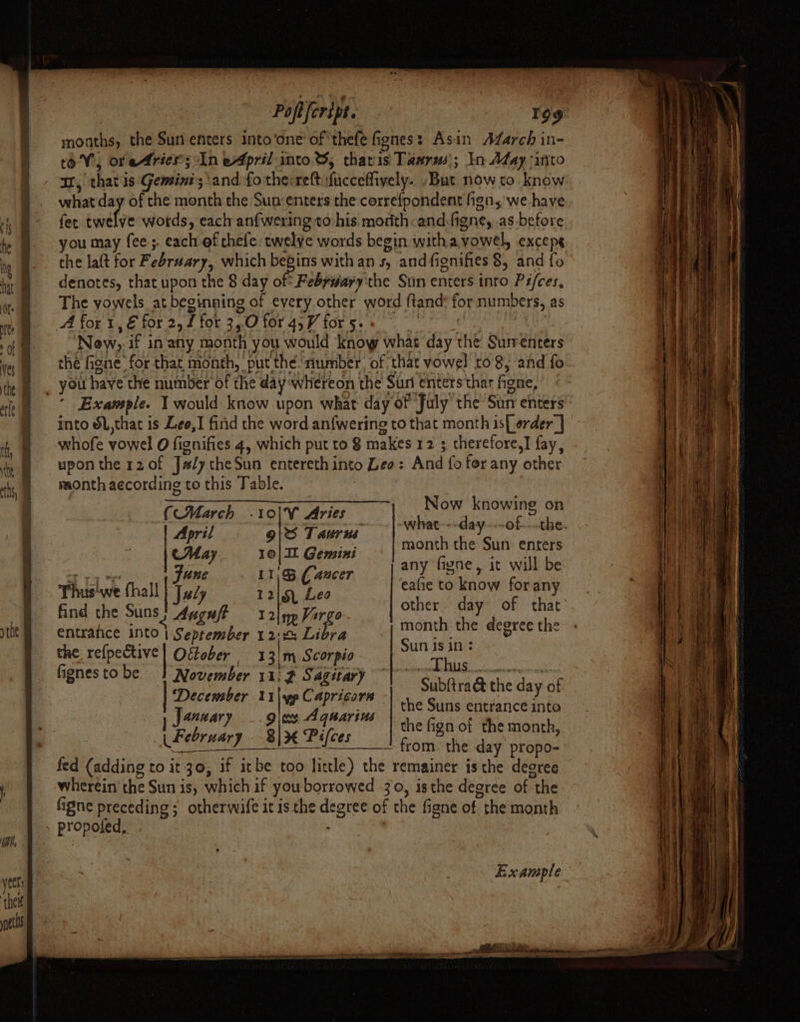 Poſtſcript. 199
months, the Sun enters into one of theſe ſignes: As in March in-
to ♈, or Aries; In April into ♉, that is Taurus; In May into
♊, that is Gemini; and ſo the reſt ſucceſſively. But now to know
what day of the month the Sun enters the correſpondent ſign, we have
ſet twelve words, each anſwering to his month and ſigne, as before
you may ſee; each of theſe twelve words begin with a vowel, except
the laſt for February, which begins with an s, and ſignifies 8, and ſo
denotes, that upon the 8 day of February the Sun enters into Piſces.
The vowels at beginning of every other word ſtand for numbers, as
A for 1, E for 2, I for 3, O for 4, V for 5.
Now, if in any month you would know what day the Sun enters
the ſigne for that month, put the number of that vowel to 8, and ſo
you have the number of the day whereon the Sun enters that ſigne,
Example. I would know upon what day of July the Sun enters
into ♌, that is Leo, I find the word anſwering to that month is [order]
whoſe vowel O ſignifies 4, which put to 8 makes 12; therefore, I ſay,
upon the 12 of July the Sun entereth into Leo: And ſo for any other
month according to this Table.
Thus we ſhall
find the Suns
entrance into
the reſpective
ſignes to be
March 10 ♈ Aries
April 9 ♉ Taurus
May 10 ♊ Gemini
June 11 ♋ Cancer
July 12 ♌ Leo
Auguſt 12 ♍ Virgo
September 12 ♎ Libra
October 13 ♏ Scorpio
November 11 ♐ Sagitary
December 11 ♑ Capricorn
January 9 ♒ Aquarius
February 8 ♓ Piſces
Now knowing on
what day of the
month the Sun enters
any ſigne, it will be
eaſie to know for any
other day of that
month the degree the
Sun is in:
Thus
Subſtract the day of
the Suns entrance into
the ſign of the month,
from the day propo-
ſed (adding to it 30, if it be too little) the remainer is the degree
wherein the Sun is, which if you borrowed 30, is the degree of the
ſigne preceding; otherwiſe it is the degree of the ſigne of the month
propoſed.
Example